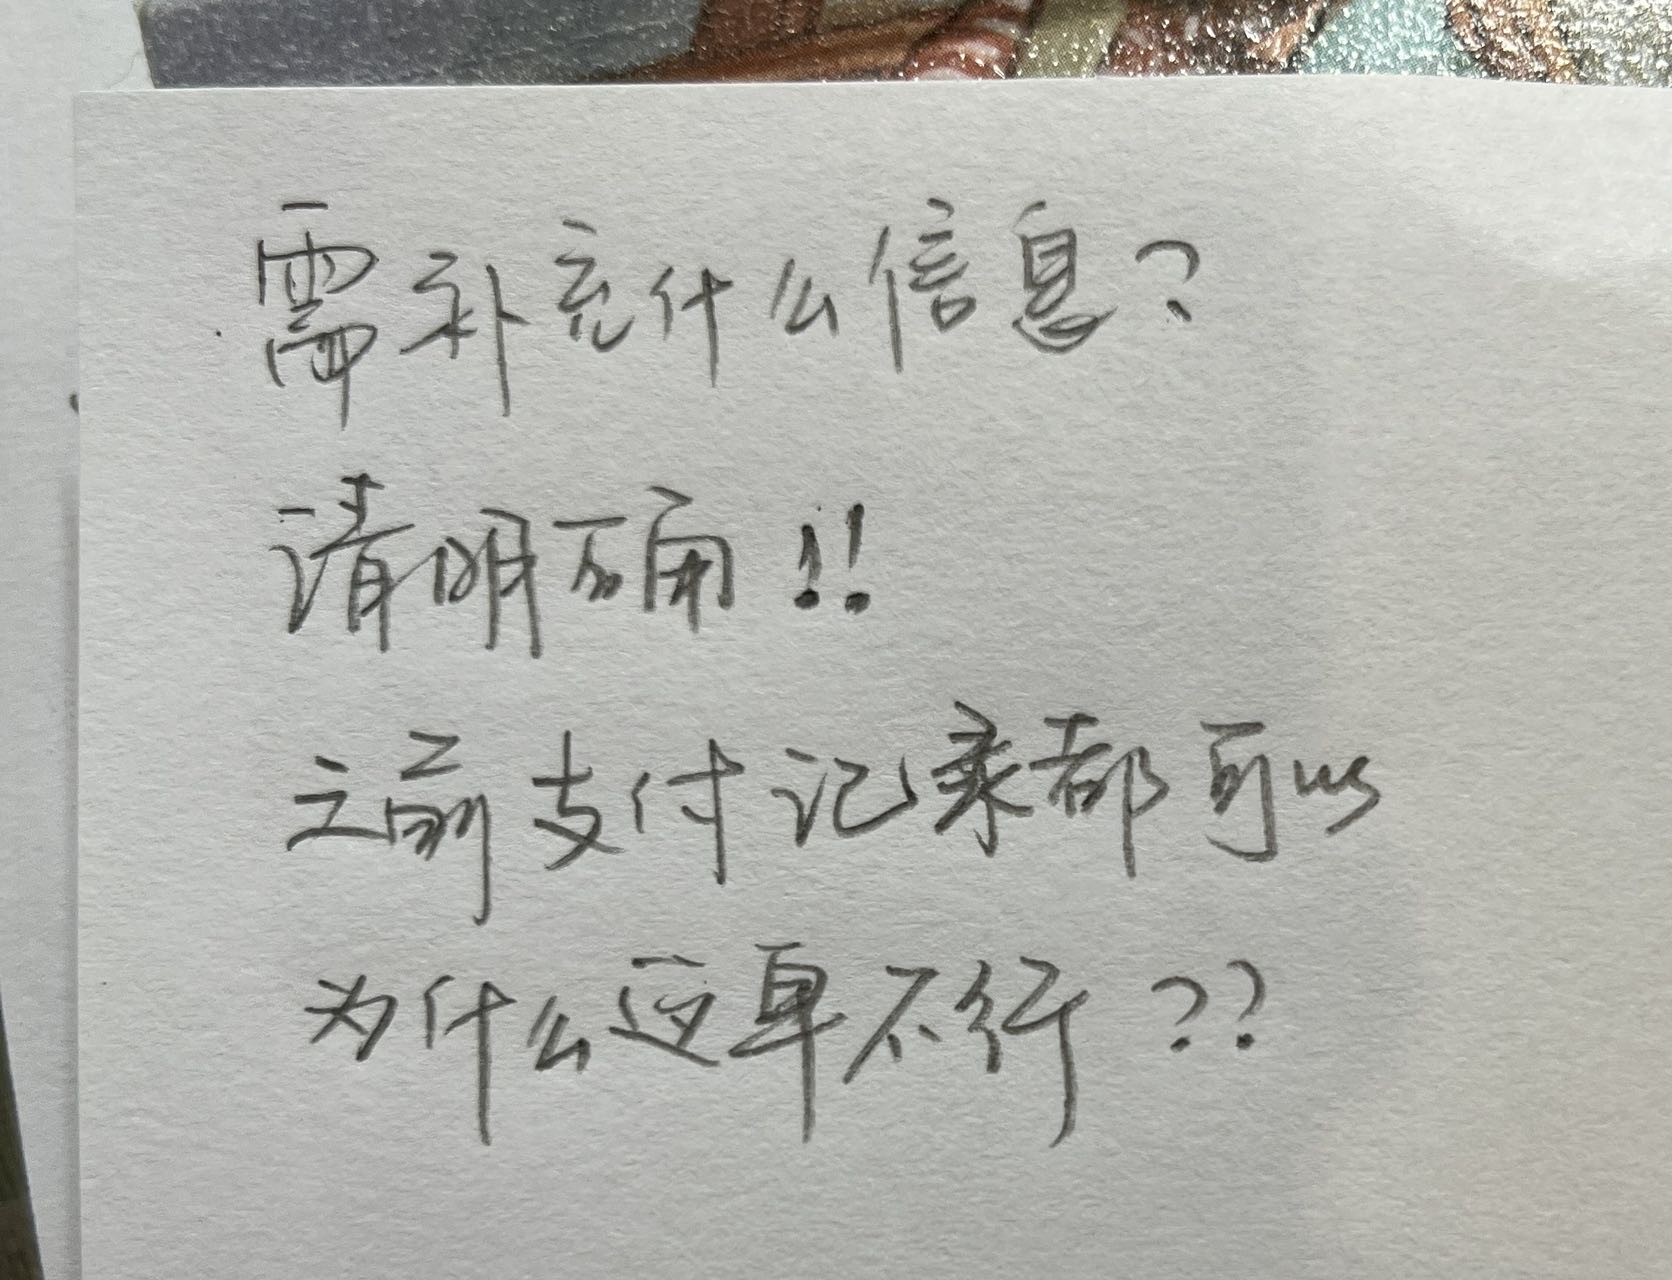 需补充什么信息?
请明确!!
之前支付记录都可以
为什么这单不行??